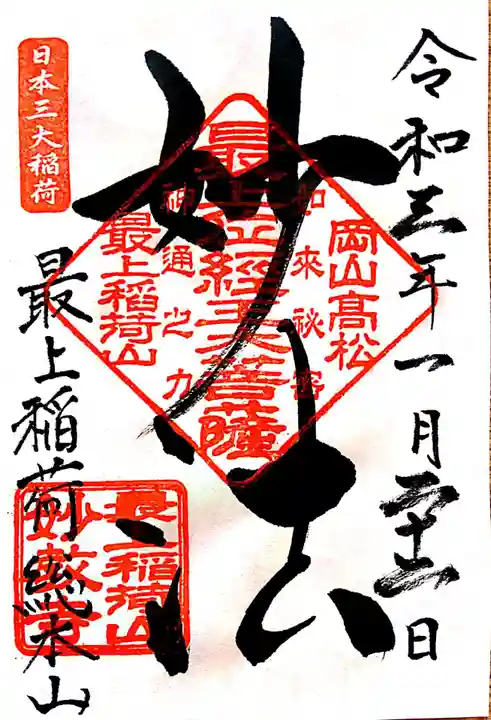 令和三年一月二十二日
妙法
岡山髙松
如来秘密
最上位経王大菩薩
神通之力
最上稲荷山
日本三大稲荷
最上稲荷総本山
最上稲荷山
妙教寺